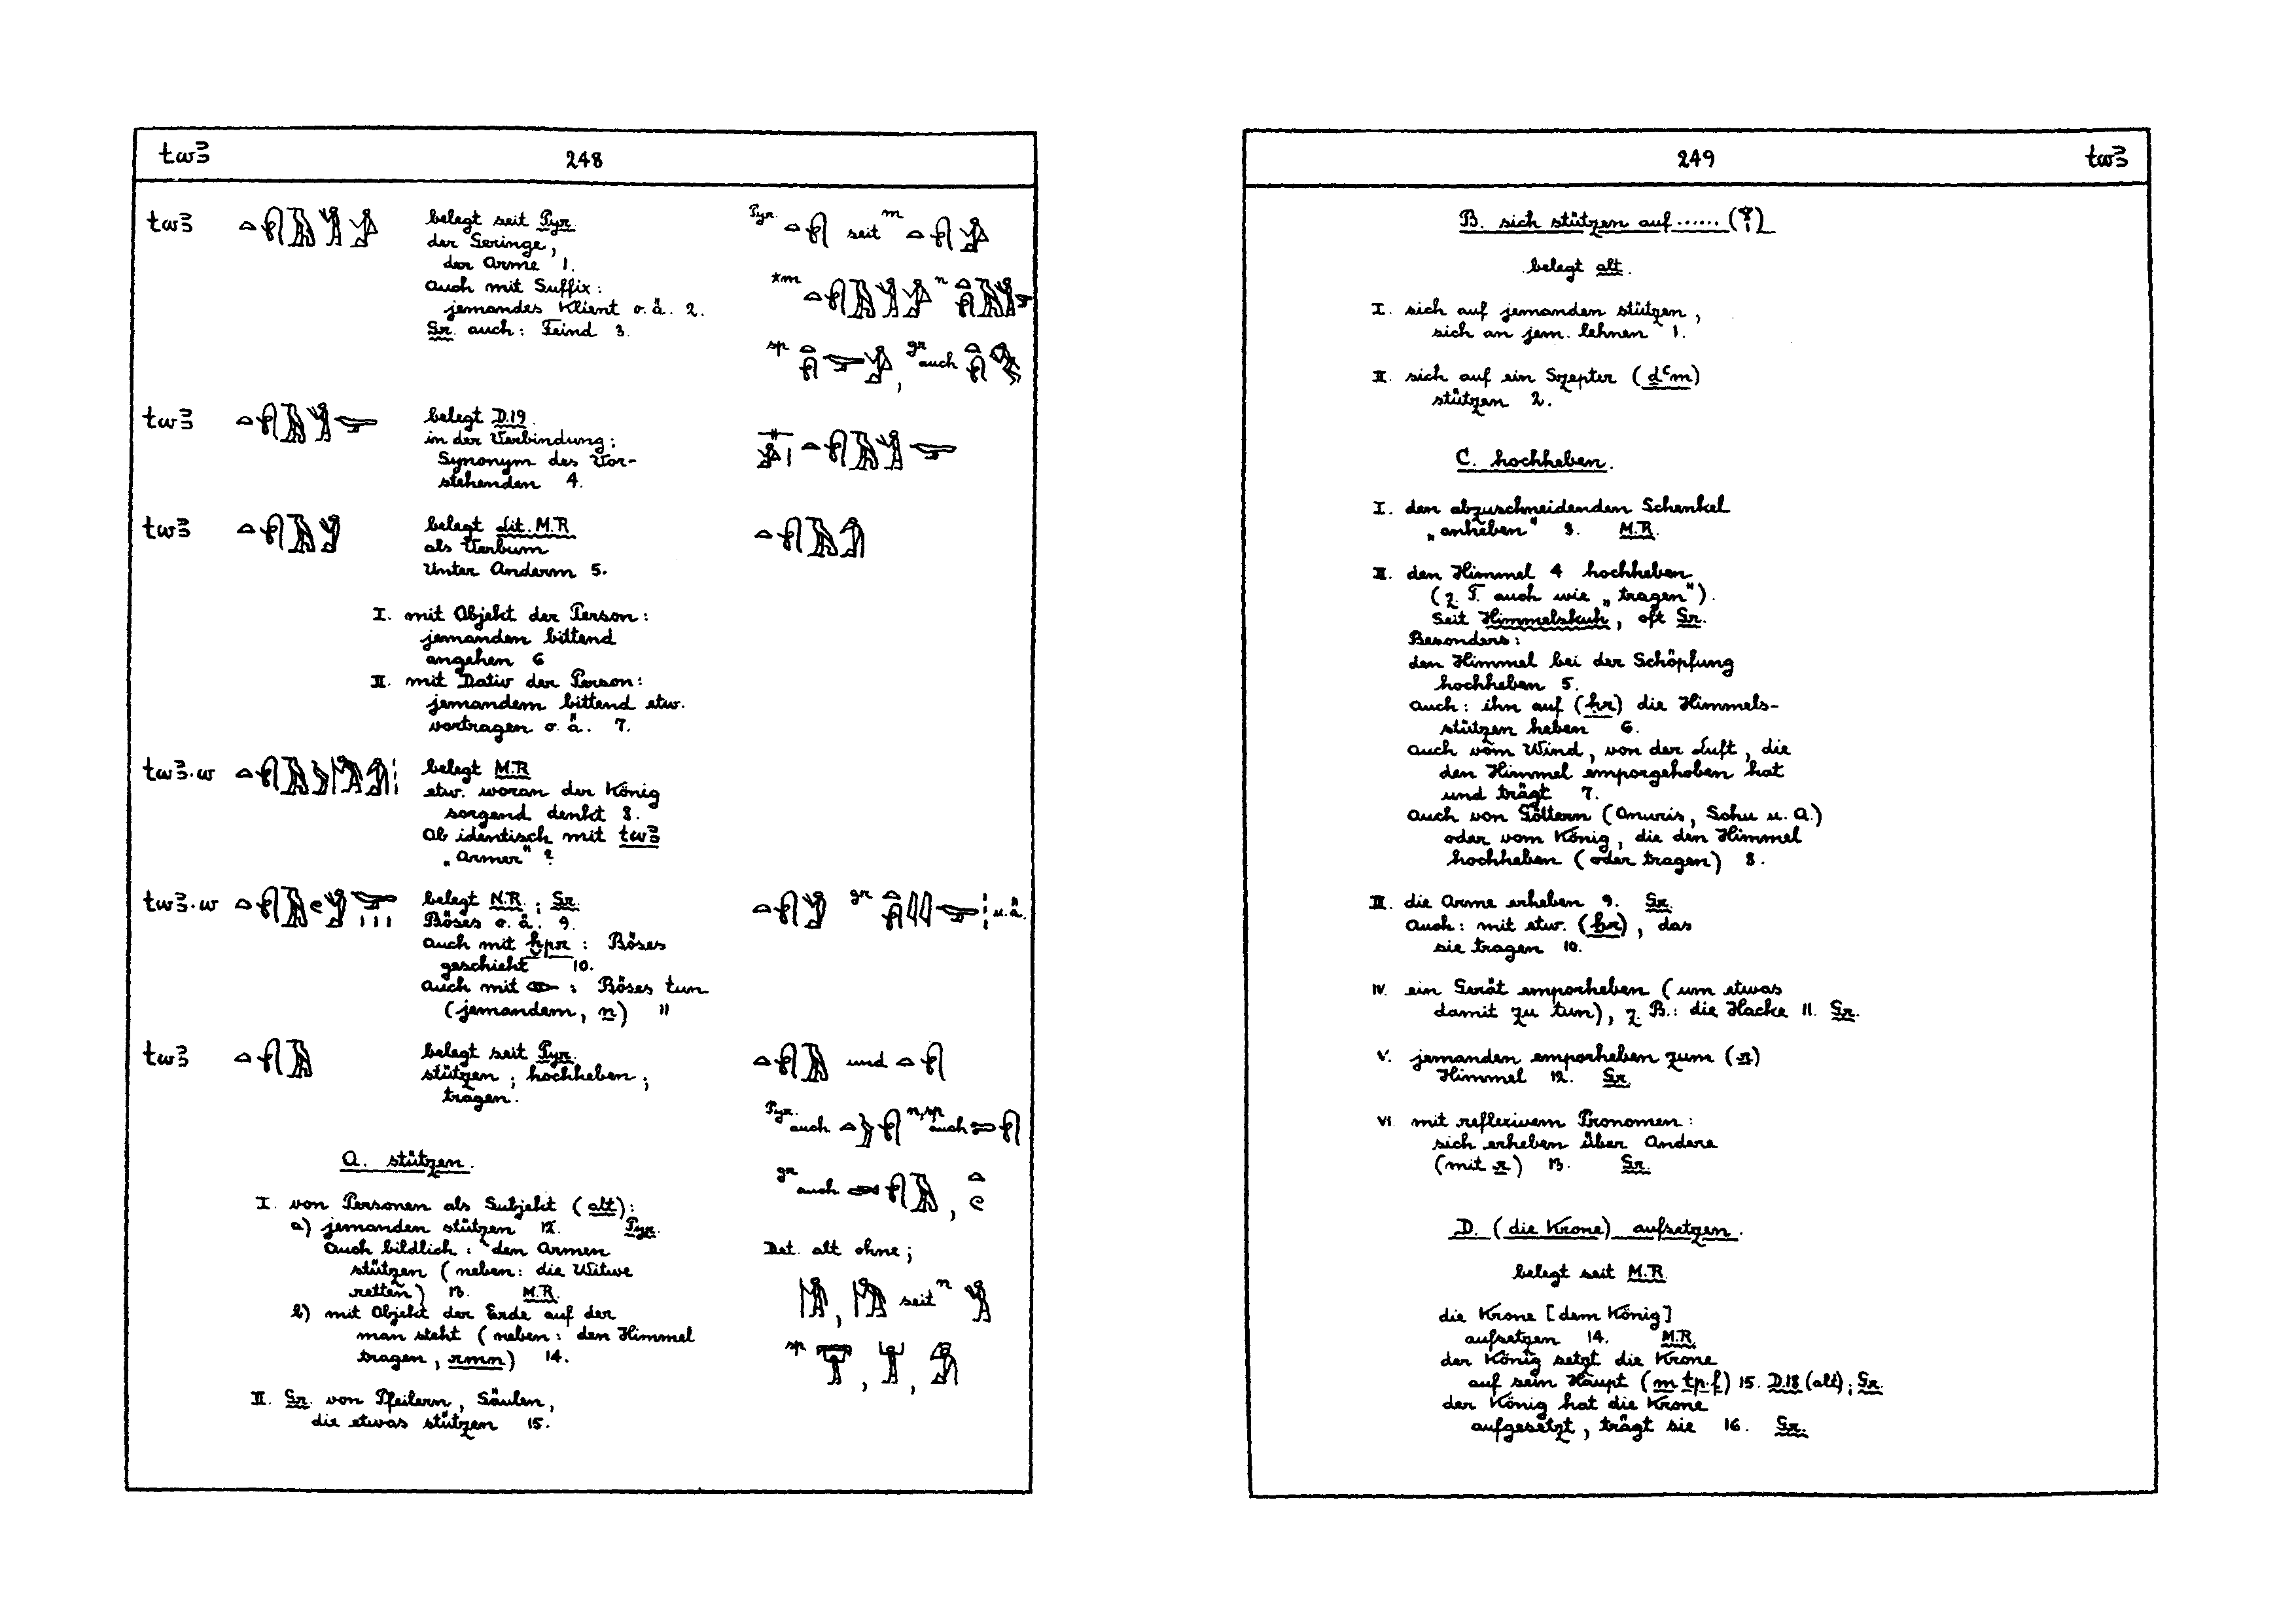 twꜣ 248
twꜣ belegt seit Pyr.
der Geringe,
der Arme 1.
auch mit Suffix:
jemandes Klient o. ä. 2.
Gr. auch: Feind 3.
Pyr. seit m
*m n
sp , gr auch
twꜣ belegt D.19.
in der Verbindung:
Synonym des Vor-
stehenden 4.
twꜣ belegt Lit. M.R
als Verbum
Unter Anderm 5.
I. mit Objekt der Person:
jemanden bittend
angehen 6
II. mit Dativ der Person:
jemandem bittend etw.
vortragen o. ä. 7.
twꜣ.w belegt M.R
etw. woran der König
sorgend denkt 8.
Ob identisch mit twꜣ
„Armer" ?
twꜣ.w belegt N.R.; Gr.
Böses o. ä. 9.
auch mit ḫpr : Böses
geschieht 10.
auch mit 𓁹 : Böses tun
(jemandem, n) 11
gr u. ä.
twꜣ belegt seit Pyr.
stützen; hochheben;
tragen.
und
Pyr. auch n, sp auch
gr auch ,
Det. alt ohne;
, seit n
sp , ,
A. stützen.
I. von Personen als Subjekt (alt):
a) jemanden stützen 12. Pyr.
Auch bildlich: den Armen
stützen (neben: die Witwe
retten) 13. M.R.
b) mit Objekt der Erde auf der
man steht (neben: den Himmel
tragen, rmn) 14.
II. Gr. von Pfeilern, Säulen,
die etwas stützen 15.
249 twꜣ
B. sich stützen auf ...... (?)
belegt alt.
I. sich auf jemanden stützen,
sich an jem. lehnen 1.
II. sich auf ein Szepter (ḏꜥm)
stützen 2.
C. hochheben.
I. den abzuschneidenden Schenkel
„anheben" 3. M.R.
II. den Himmel 4 hochheben
(z. T. auch wie „tragen").
Seit Himmelskuh, oft Gr.
Besonders:
den Himmel bei der Schöpfung
hochheben 5.
auch: ihn auf (ḥr) die Himmels-
stützen heben 6.
auch vom Wind, von der Luft, die
den Himmel emporgehoben hat
und trägt 7.
auch von Göttern (Onuris, Schu u. A.)
oder vom König, die den Himmel
hochheben (oder tragen) 8.
III. die Arme erheben 9. Gr.
auch: mit etw. (ẖr), das
sie tragen 10.
IV. ein Gerät emporheben (um etwas
damit zu tun), z. B.: die Hacke 11. Gr.
V. jemanden emporheben zum (r)
Himmel 12. Gr.
VI. mit reflexivem Pronomen:
sich erheben über Andere
(mit r) 13. Gr.
D. (die Krone) aufsetzen.
belegt seit M.R.
die Krone [dem König]
aufsetzen 14. M.R.
der König setzt die Krone
auf sein Haupt (m tp.f) 15. D.18 (alt); Gr.
der König hat die Krone
aufgesetzt, trägt sie 16. Gr.